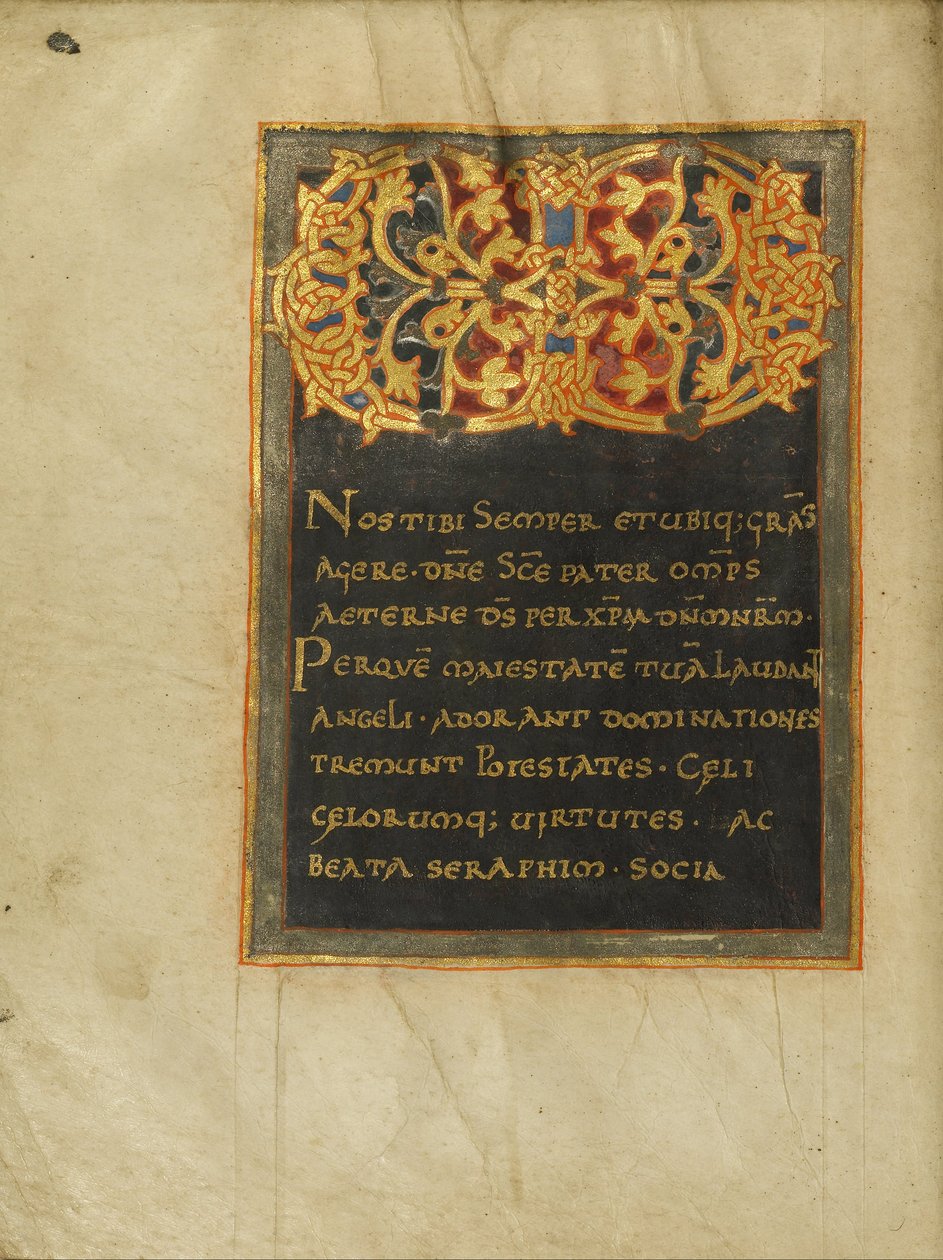 NOS TIBI SEMPER ETUBIQ; GRĀS
AGERE · DN̄E SC̄E PATER OMP̄S
AETERNE DS̄ PER XP̄M · DN̄M NR̄M ·
PERQVĒ MAIESTATĒ TUĀ LAUDANT
ANGELI · ADORANT DOMINATIONES
TREMUNT POTESTATES · CĘLI
CĘLORUMQ; UIRTUTES · AC
BEATA SERAPHIM · SOCIA